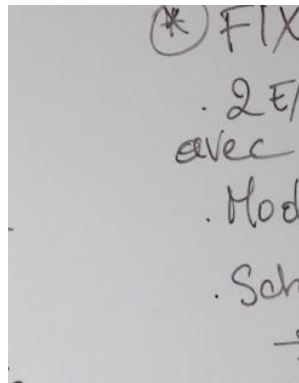 * FIX
. 2 E/
avec
. Mod
. Sch